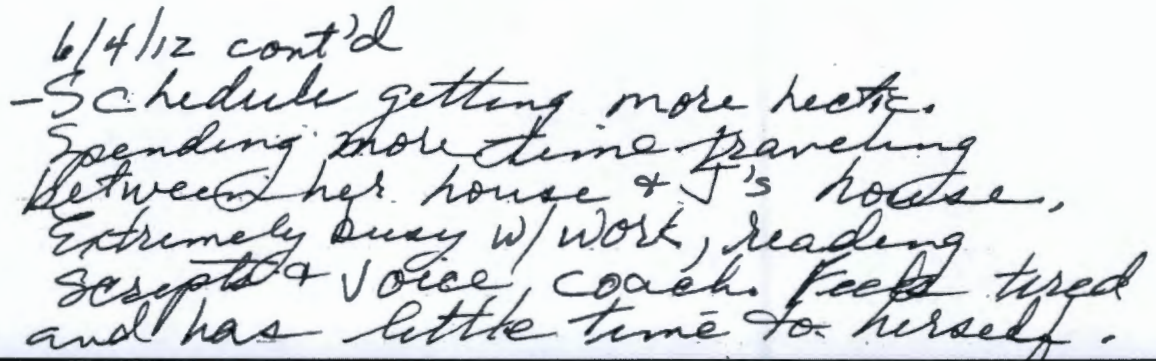 6/4/12 cont'd
-Schedule getting more hectic.
Spending more time traveling
between her house & J's house.
Extremely busy w/ work, reading
scripts & voice coach. Feels tired
and has little time to herself.